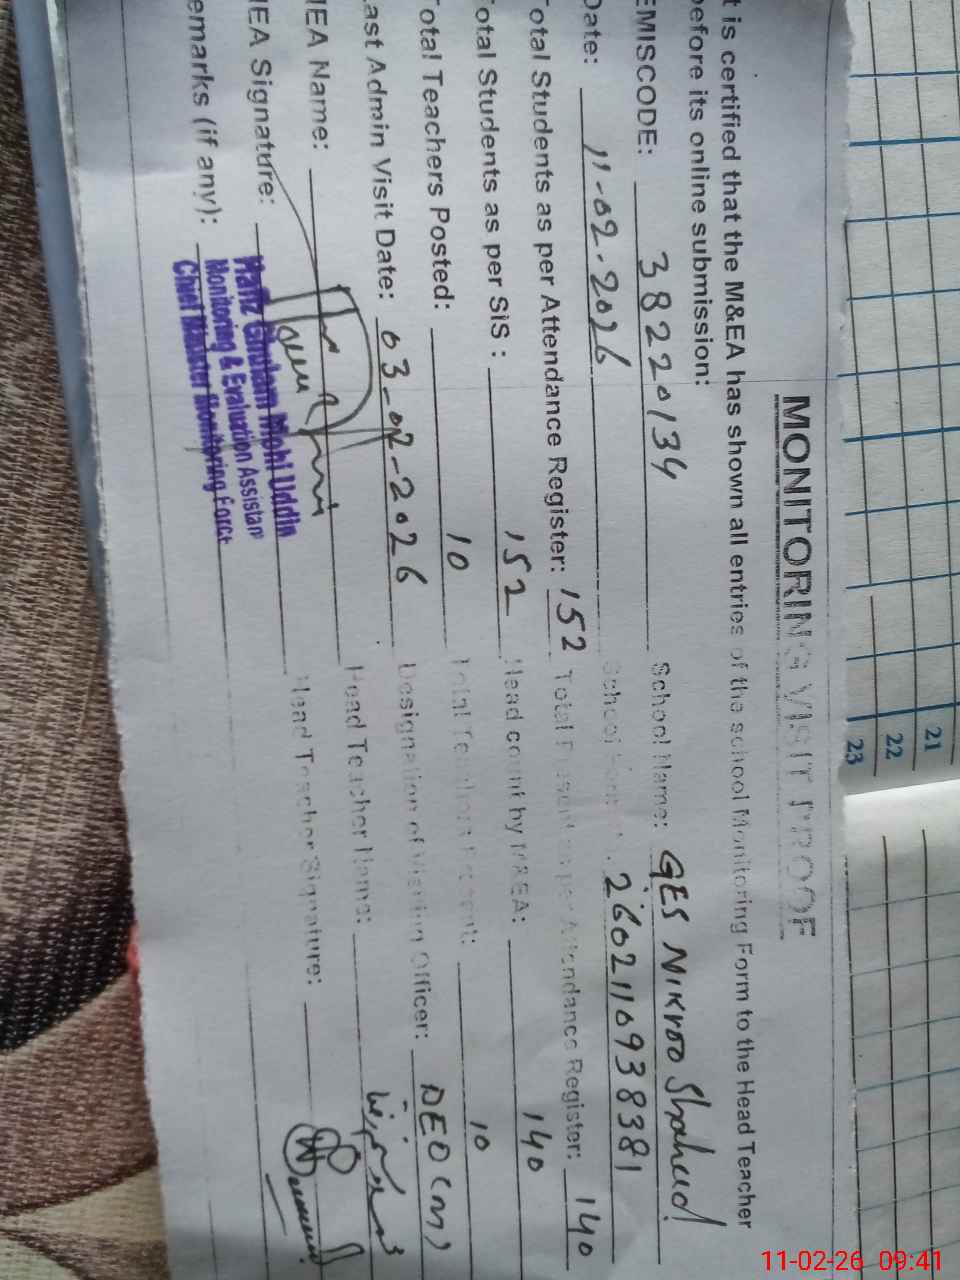 MONITORING VISIT PROOF
t is certified that the M&EA has shown all entries of the school Monitoring Form to the Head Teacher
before its online submission:
EMISCODE: 38220134 School Name: GES Nikroo Shaheed
Date: 11-02-2026 School 260211093838381
Total Students as per Attendance Register: 152 Total Present as per Attendance Register: 140
Total Students as per SiS : 152 Head count by M&EA: 140
Total Teachers Posted: 10 Total Teachers Present: 10
Last Admin Visit Date: 03-02-2026 Designation of Visiting Officer: DEO (M)
MEA Name: Head Teacher Name:
MEA Signature: Head Teacher Signature:
emarks (if any):
Hafiz Ghulam Mohi Uddin
Monitoring & Evaluation Assistan
Chief Minister Monitoring Force
21
22
23
11-02-26 09:41